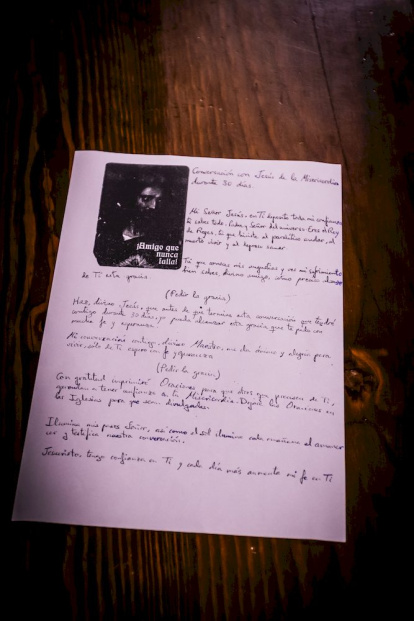 Conversación con Jesús de la Misericordia
durante 30 días.
¡Amigo que
nunca
falla!
Mi Señor Jesús, en Ti deposito toda mi confianza
tú sabes todo. Padre y Señor del universo. Eres el Rey
de Reyes, tú que hiciste al paralítico andar, al
muerto vivir y al leproso sanar
Tú, que conoces mis angustias y ves mi sufrimiento
bien sabes, divino amigo, cómo preciso alcanzar
de Ti esta gracia.
(Pedir la gracia)
Haz, divino Jesús, que antes de que termine esta conversación que tendré
contigo durante 30 días, yo pueda alcanzar esta gracia que te pido con
mucha fe y esperanza.
Mi conversación contigo, divino Maestro, me da ánimo y alegría para
vivir, sólo de Ti espero con fe y esperanza
(Pedir la gracia)
Con gratitud imprimiré Oraciones para que otros que precisan de Ti,
aprendan a tener confianza en la Misericordia Dejaré las Oraciones en
las Iglesias para que sean divulgadas.
Ilumina mis pasos Señor, así como el sol ilumina cada mañana el amanecer
y testifica nuestra conversación.
Jesucristo, tengo confianza en Ti y cada día más aumenta mi fe en Ti